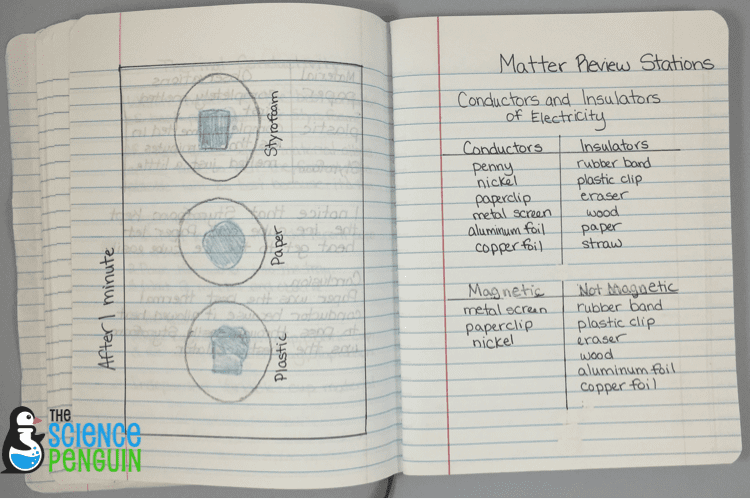 After 1 minute
Styrofoam
Paper
Plastic
Matter Review Stations
Conductors and Insulators
of Electricity
Conductors Insulators
penny rubber band
nickel plastic clip
paperclip eraser
metal screen wood
aluminum foil paper
copper foil straw
Magnetic Not Magnetic
metal screen rubber band
paperclip plastic clip
nickel eraser
wood
aluminum foil
copper foil
THE
SCIENCE
PENGUIN